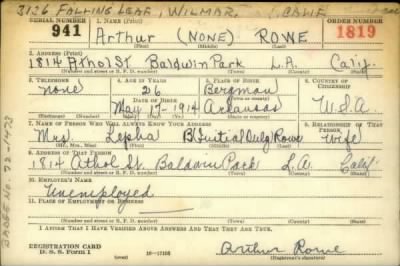 3126 FALLING LEAF, WILMAR, CALIF
SERIAL NUMBER 1. NAME (Print) ORDER NUMBER
941 Arthur (NONE) ROWE 1819
(First) (Middle) (Last)
2. ADDRESS (Print)
1814 Athol St Baldwin Park L.A. Calif.
(Number and street or R. F. D. number) (Town) (County) (State)
3. TELEPHONE 4. AGE IN YEARS 5. PLACE OF BIRTH 6. COUNTRY OF CITIZENSHIP
none 26 Bergman
DATE OF BIRTH
May 17-1914 Arkansas U.S.A.
(Exchange) (Number) (Mo.) (Day) (Yr.) (State or country)
7. NAME OF PERSON WHO WILL ALWAYS KNOW YOUR ADDRESS 8. RELATIONSHIP OF THAT PERSON
Mrs Lepha B (Initial Only) Rowe Wife
(Mr., Mrs., Miss) (First) (Middle) (Last)
9. ADDRESS OF THAT PERSON
1814 Athol St. Baldwin Park L.A. Calif
(Number and street or R. F. D. number) (Town) (County) (State)
10. EMPLOYER'S NAME
Unemployed
11. PLACE OF EMPLOYMENT OR BUSINESS
(Number and street or R. F. D. number) (Town) (County) (State)
I AFFIRM THAT I HAVE VERIFIED ABOVE ANSWERS AND THAT THEY ARE TRUE.
REGISTRATION CARD
D. S. S. Form 1 16-17105 Arthur Rowe
(Registrant's signature)
BADGE No. 72-1473